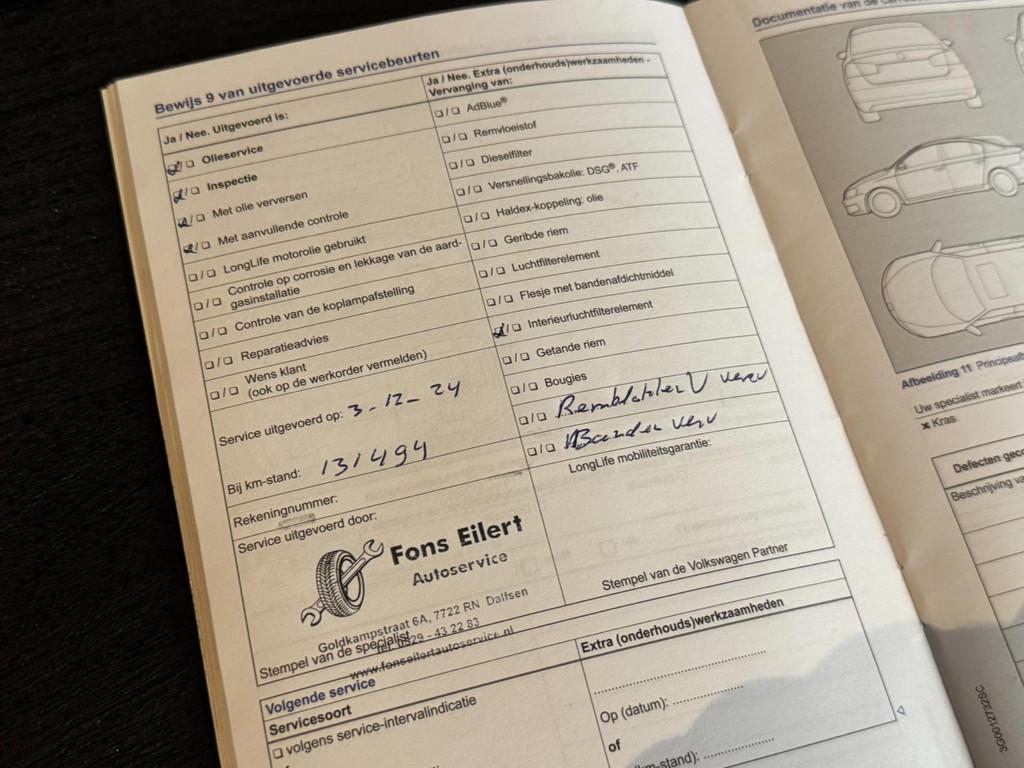 Bewijs 9 van uitgevoerde servicebeurten
Ja / Nee. Uitgevoerd is:
☑/☐ Olieservice
☑/☐ Inspectie
☑/☐ Met olie verversen
☑/☐ Met aanvullende controle
☐/☐ LongLife motorolie gebruikt
☐/☐ Controle op corrosie en lekkage van de aard-
gasinstallatie
☐/☐ Controle van de koplampafstelling
☐/☐ Reparatieadvies
☐/☐ Wens klant
(ook op de werkorder vermelden)
Service uitgevoerd op: 3-12-24
Bij km-stand: 131494
Rekeningnummer:
Service uitgevoerd door:
Fons Eilert
Autoservice
Goldkampstraat 6A, 7722 RN Dalfsen
Tel. 0529 - 43 22 83
www.fonseilertautoservice.nl
Stempel van de specialist
Ja / Nee. Extra (onderhouds)werkzaamheden -
Vervanging van:
☐/☐ AdBlue®
☐/☐ Remvloeistof
☐/☐ Dieselfilter
☐/☐ Versnellingsbakolie: DSG®, ATF
☐/☐ Haldex-koppeling: olie
☐/☐ Geribde riem
☐/☐ Luchtfilterelement
☐/☐ Flesje met bandenafdichtmiddel
☑/☐ Interieurluchtfilterelement
☐/☐ Getande riem
☐/☐ Bougies
☐/☐ Remblokken V verv
☐/☐ Banden verv
LongLife mobiliteitsgarantie:
Stempel van de Volkswagen Partner
Volgende service
Servicesoort
☐ volgens service-intervalindicatie
Extra (onderhouds)werkzaamheden
Op (datum):
of
km-stand):
Documentatie van de
Afbeelding 11 
Uw specialist markeert
x Kras
Defecten
Beschrijving
3G0012732SC